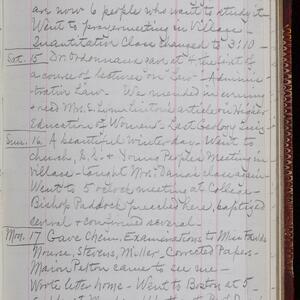 are now 6 people who want to study it -
Went to prayer meeting in Village -
Quantitative Class changed to 3:10 -
Sat. 15 Dr. Ordronaux gave at 4 the first of
a course of lectures on "Law" - Adminis-
trative Law - We mended in evening
& read Mrs. E. Lynn Linton's article on Higher
Education of Women - Last Geology
Sun. 16 A beautiful winter day - Went to
Church, S.S. & Young People's Meeting in
Village - taught Mrs. Dana's class again -
Went to 5 o'clock meeting at College -
Bishop Paddock preached here, baptized
several & confirmed several -
Mon. 17 Gave Chem. Examinations to Miss
Morse, Stevens, Miller - Corrected Papers -
Marion Paton came to see me -
Wrote letter home - Went to Boston at 5 -